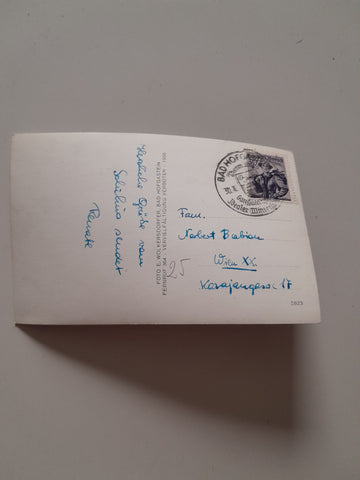 Herzliche Grüße vom
Schikurs sendet
Renate
FOTO E. WOLKERSDORFER, BAD HOFGASTEIN
FERNRUF 364 - VERVIELFÄLTIGUNG VERBOTEN - 1960
25
BAD HOFGASTEIN
Fam.
Norbert Babion
Wien XX.
Karajangasse 17
5825